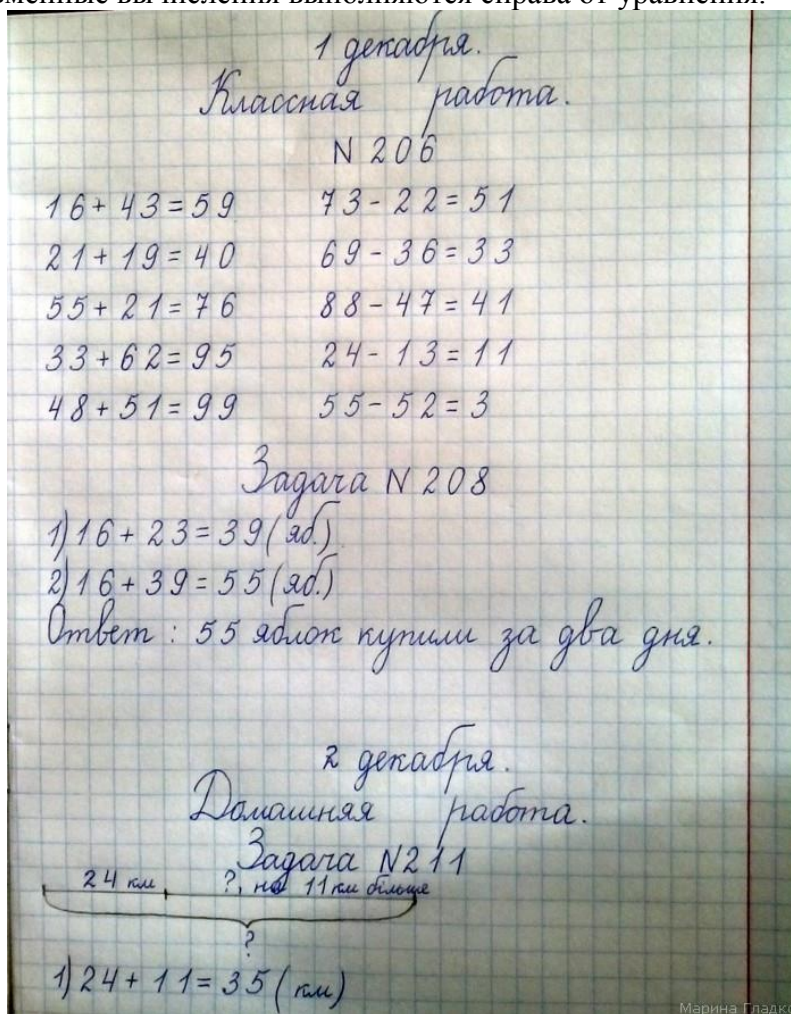 еменные вычисления выполняются справа от уравнения.
1 декабря.
Классная работа.
N 206
16+43=59 73-22=51
21+19=40 69-36=33
55+21=76 88-47=41
33+62=95 24-13=11
48+51=99 55-52=3
Задача N 208
1) 16+23=39 (яб.)
2) 16+39=55 (яб.)
Ответ: 55 яблок купили за два дня.
2 декабря.
Домашняя работа.
Задача N211
24 км ?, на 11 км більше
?
1) 24+11=35 (км)
Марина Гладко